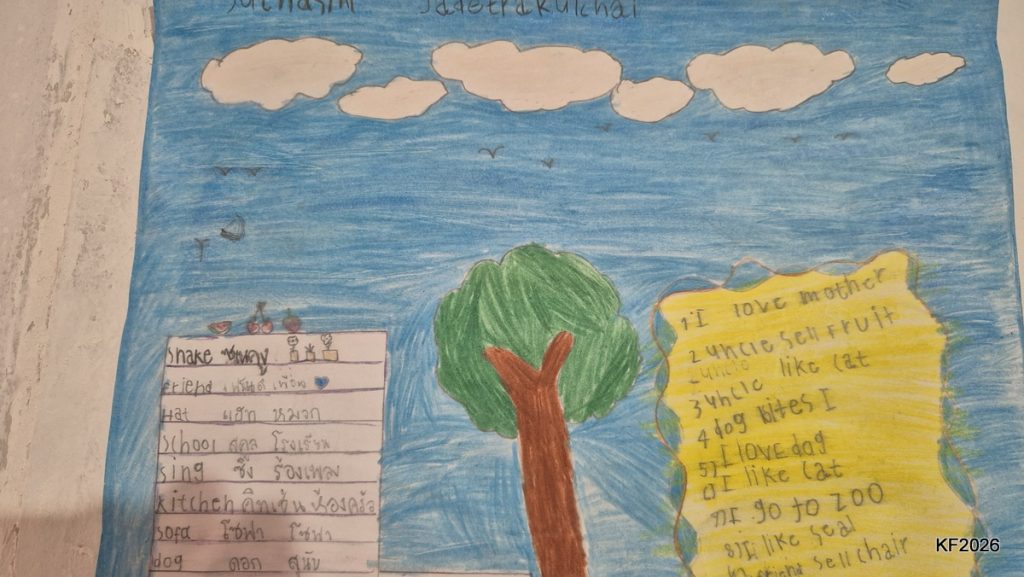 Jadetrakulchai
snake
friend เฟรนด์ เพื่อน
Hat แฮท หมวก
School สคูล โรงเรียน
sing ซิ่ง ร้องเพลง
kitchen คิทเช่น ห้องครัว
sofa โซฟา โซฟา
dog ดอก สุนัข
1 I love mother
2 uncle sell Fruit
3 uncle like cat
4 dog bites I
5) I love dog
I like cat
7) I go to zoo
8) I like seal
sell chair
KF2026